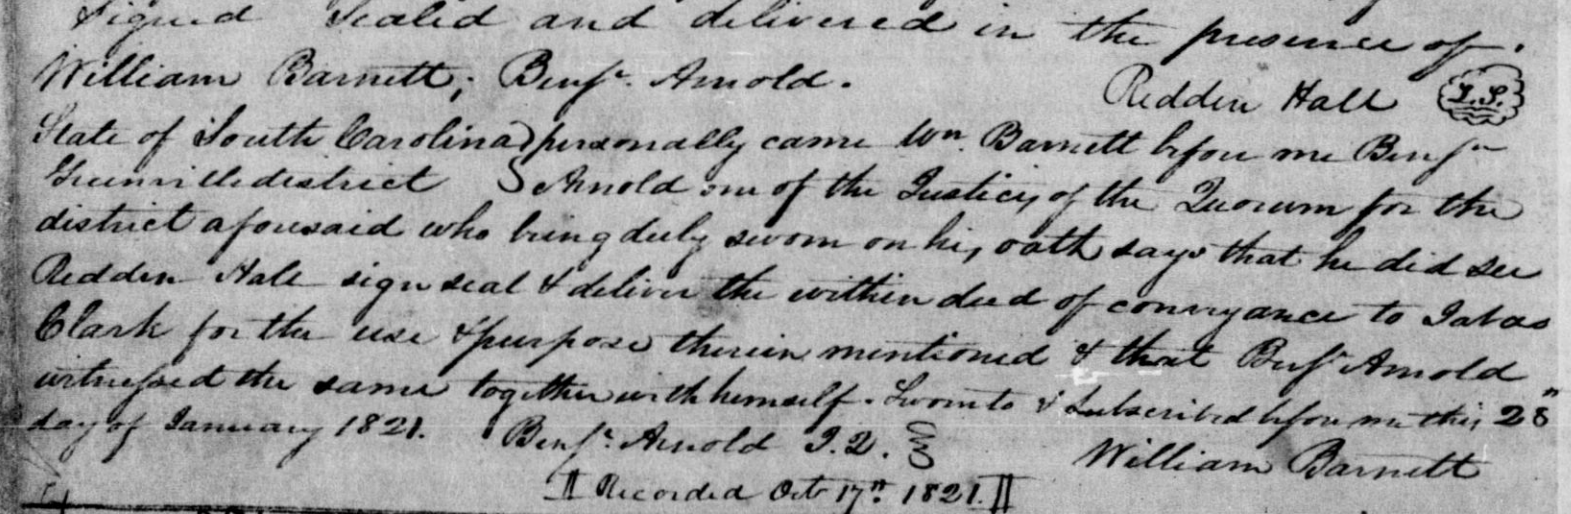 Signed Sealed and delivered in the presence of.
William Barnett; Benjn. Arnold. Redden Hall L.S.
State of South Carolina) personally came Wm. Barnett before me Benjn
Greenville district S Arnold one of the Justices of the Quorum for the
district aforesaid who being duly sworn on his oath says that he did see
Redden Hall sign seal & deliver the within deed of conveyance to
Clark for the use & purpose therein mentioned & that Benjn Arnold
witnessed the same together with himself. Sworn to & Subscribed before me this 28th
day of January 1821. Benjn. Arnold J.Q. William Barnett
Recorded Octr 17th. 1821.